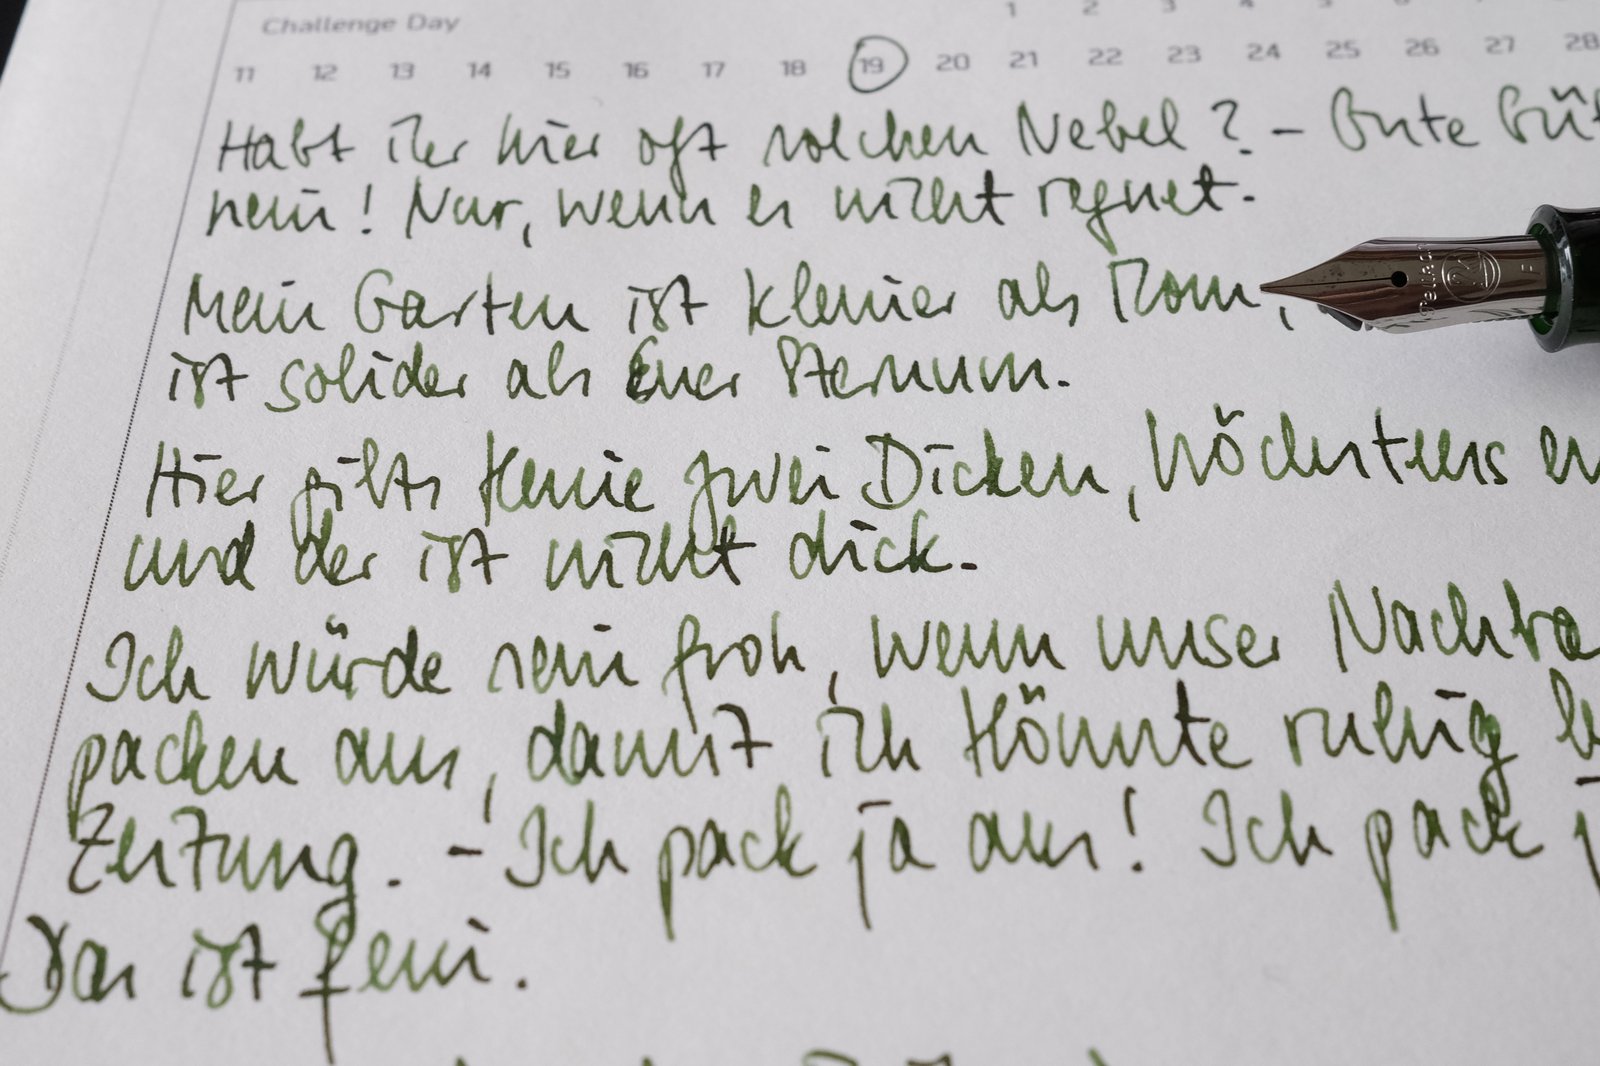 Challenge Day
1 2 3 4 5 6
11 12 13 14 15 16 17 18 19 20 21 22 23 24 25 26 27 28
Habt ihr hier oft solchen Nebel? – Gute
nein! Nur, wenn es nicht regnet.
Mein Garten ist kleiner als Rom,
ist solider als Euer Sternum.
Hier gibts keine zwei Dicken, höchstens
und der ist nicht dick.
Ich würde sein froh, wenn unser
packen aus, damit ich könnte ruhig
Zeitung. – Ich pack ja aus! Ich pack
Das ist fein.